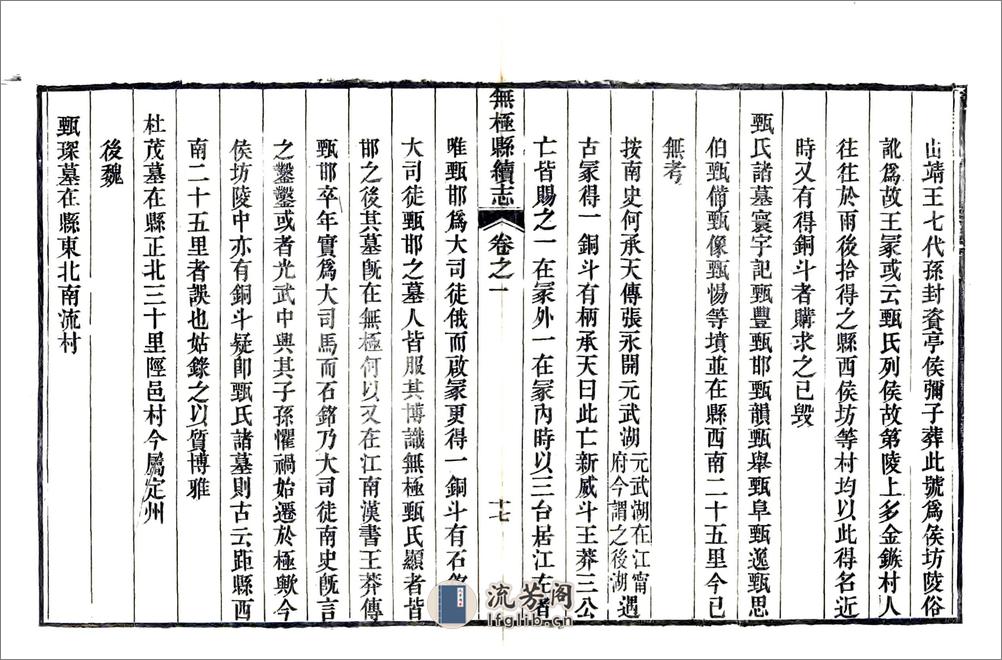 山靖王七代孫封資亭侯彌子葬此號爲侯坊陵俗
訛爲故王冢或云甄氏列侯故第陵上多金鏃村人
往往於雨後拾得之縣西侯坊等村均以此得名近
時又有得銅斗者購求之已毀
甄氏諸墓寰宇記甄豐甄邯甄韻甄舉甄阜甄逸甄思
伯甄備甄像甄暢等墳並在縣西南二十五里今已
無考
按南史何承天傳張永開元武湖元武湖在江甯府今謂之後湖遇
古冢得一銅斗有柄承天曰此亡新威斗王莽三公
亡皆賜之一在冢外一在冢內時以三台居江左者
無極縣續志 卷之一 十七
唯甄邯爲大司徒俄而啟冢更得一銅斗有石銘
大司徒甄邯之墓人皆服其博識無極甄氏顯者皆
邯之後其墓旣在無極何以又在江南漢書王莽傳
甄邯卒年實爲大司馬而石銘乃大司徒南史旣言
之鑿鑿或者光武中興其子孫懼禍始遷於極歟今
侯坊陵中亦有銅斗疑卽甄氏諸墓則古云距縣西
南二十五里者誤也姑錄之以質博雅
杜茂墓在縣正北三十里陘邑村今屬定州
後魏
甄琛墓在縣東北南流村
流芳阁
lfglib.cn